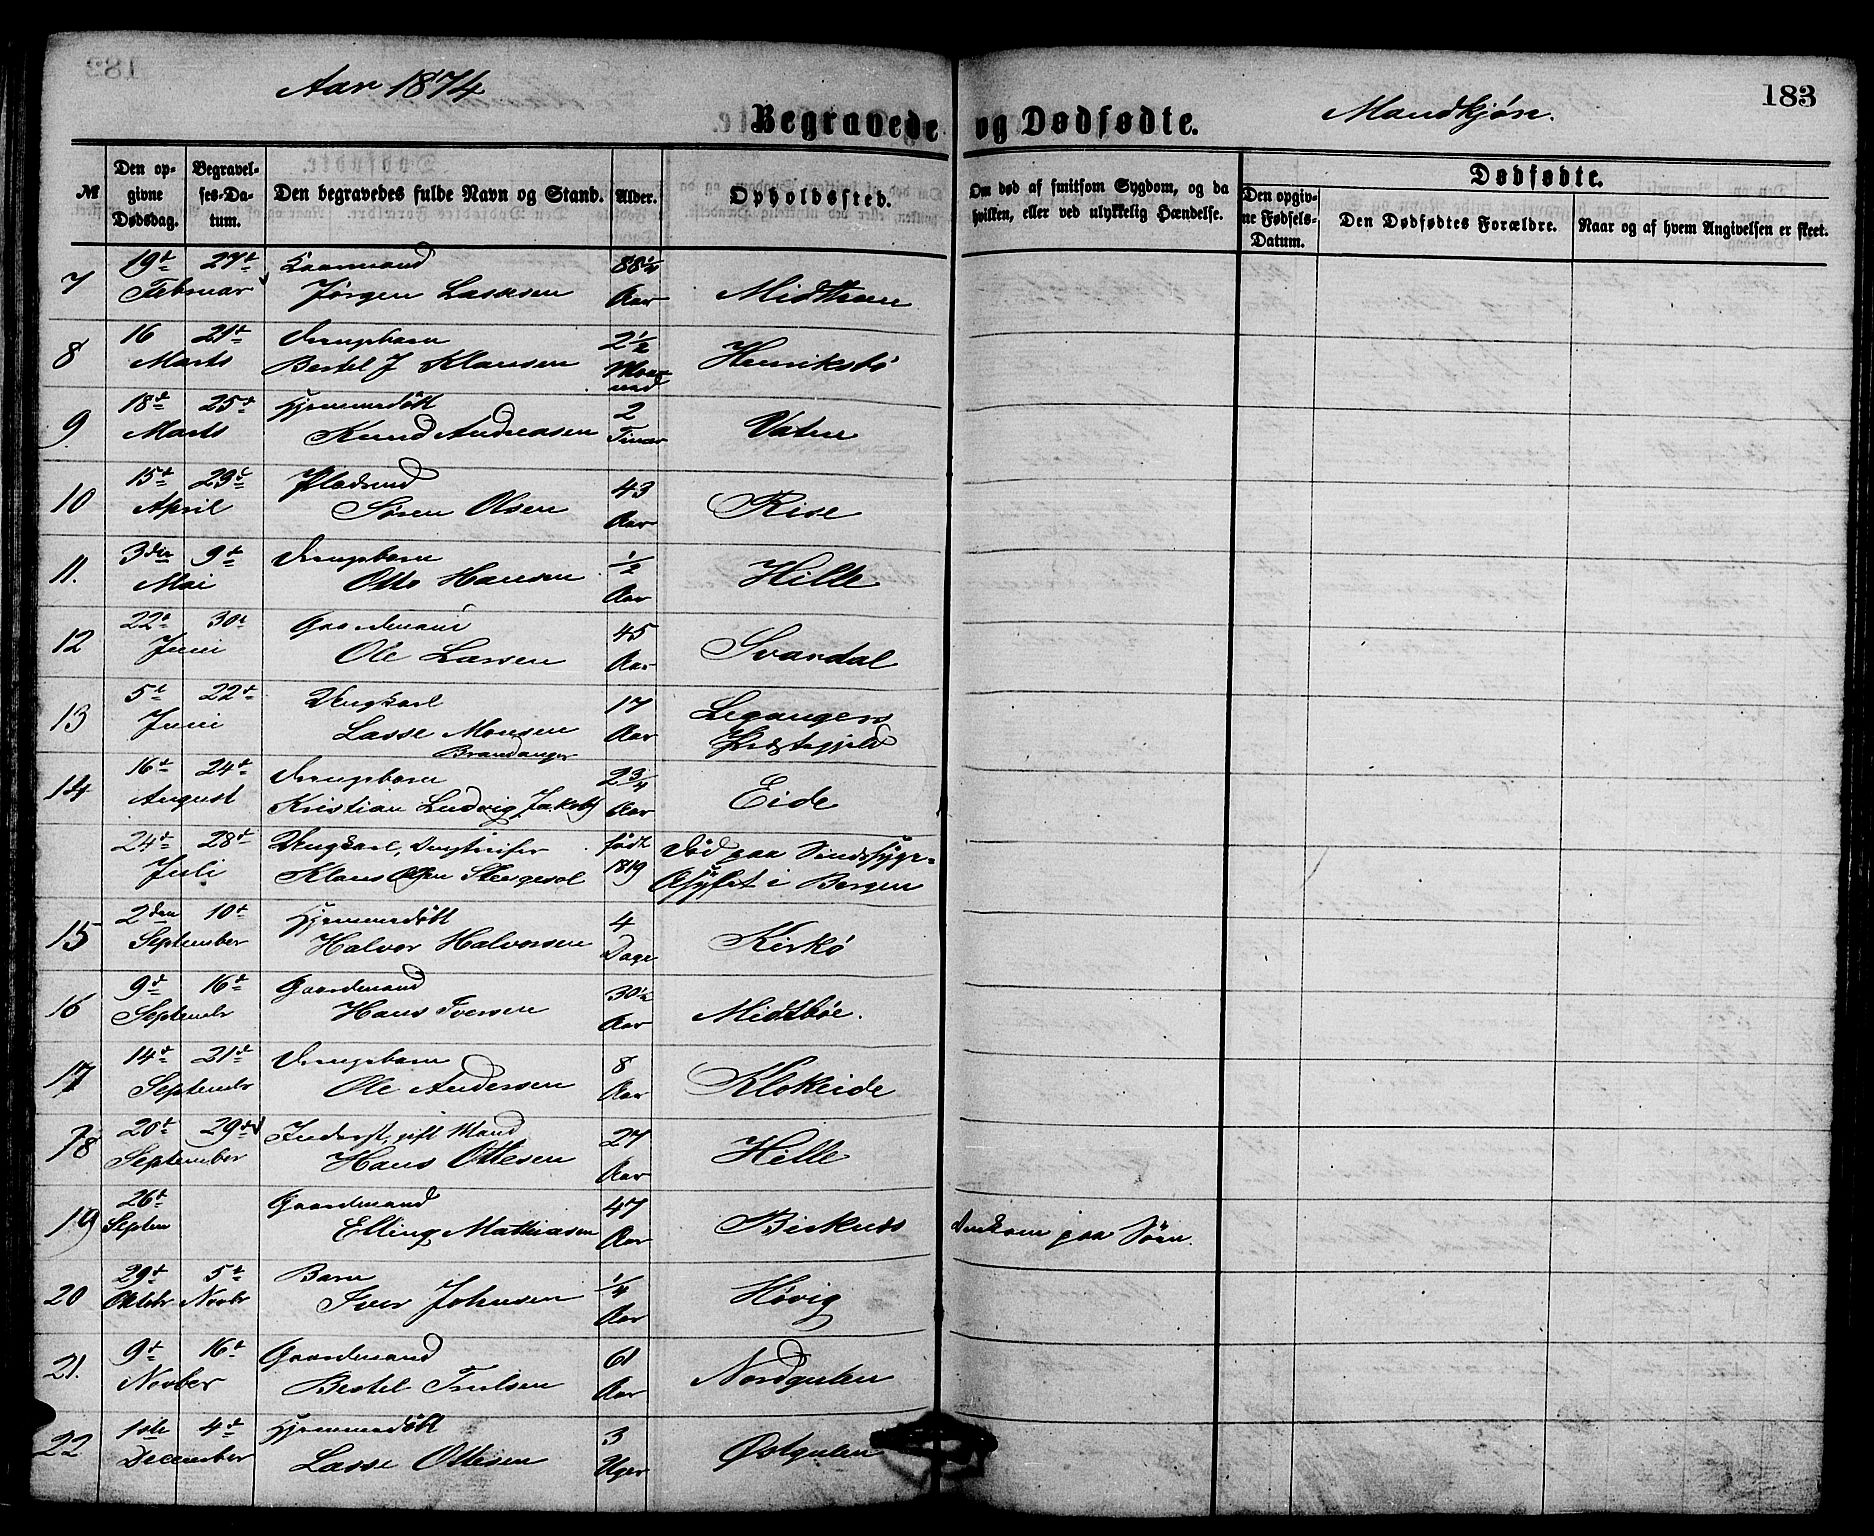 Aar 1874
Begravede og Dødfødte.
Mandkjøn.
183
№
Den opgivne Dødsdag.
Begravelses-Datum.
Den begravedes fulde Navn og Stand.
Alder.
Opholdssted.
Om død af smitsom Sygdom, og da hvilken, eller ved ulykkelig Hændelse.
Dødfødte.
Den opgivne Fødsels-Datum.
Den Dødfødtes Forældre.
Naar og af hvem Angivelsen er skeet.
7 19de 27de Kaarmand
Februar Jørgen Lassesen Aar
8 16 21de Drengebarn 2 1/2
Marts Bertel J Klausen Henriksbø
9. 18de 25de Hjemmedøbt 2
Marts Knud Andreasen Timer Vatne
10 15de 29de Pladsmd 43
April Søren Olsen Aar Rise
11. 3die 9de Drengebarn 1/2
Mai Otto Hansen Aar Hille
12 22de 30te Gaardmand 45
Juni Ole Lassen Aar Svardal
13 5te 22de Ungkarl 17
Juni Lasse Monsen Aar Leganger
Brandanger Præstegjeld
14 16de 24de Drengebarn 2 3/4
August Kristian Ludvig Jakobs Aar Eide
24de 28de Ungkarl, født
Juli Klaus Olsen 1819 Død paa Sindssyge-
Asylet i Bergen
15 2den 10de Hjemmedøbt 4
September Halvor Halvorsen Dage Kirkø
16 9de 16de Gaardmand 30 1/2
Septembr Hans Iversen Aar Midtbøe.
17 14de 21de Drengebarn 8
Septembr Ole Andersen Aar Klokeide
18 20de 29de Inderst, gift Mand 27
September Hans Ottesen Aar Hille
19 26de Gaardmand 47
Septem Elling Mathiasen Aar Birknes Omkom paa Søen.
20 29de 5te Barn 1/4
Oktobr Novbr Iver Johnsen Aar Høvig
21. 9de 16de Gaardmand 61
Novber Bertel Trulsen Aar Nordgulen
22 1ste 4de Hjemmedøbt 3
December Lasse Ottesen Uger Østgulen